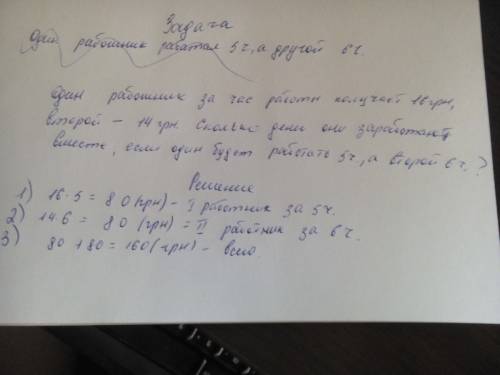 Задача
Один работник работал 5ч, а другой 6ч.
Один работник за час работы получает 16 грн,
второй – 14 грн. Сколько денег они заработают
вместе, если один будет работать 5ч, а второй 6ч.?
Решение
1) 16·5 = 80 (грн) – I работник за 5ч.
2) 14·6 = 80 (грн) = II работник за 6ч.
3) 80 + 80 = 160 (грн) – всего.